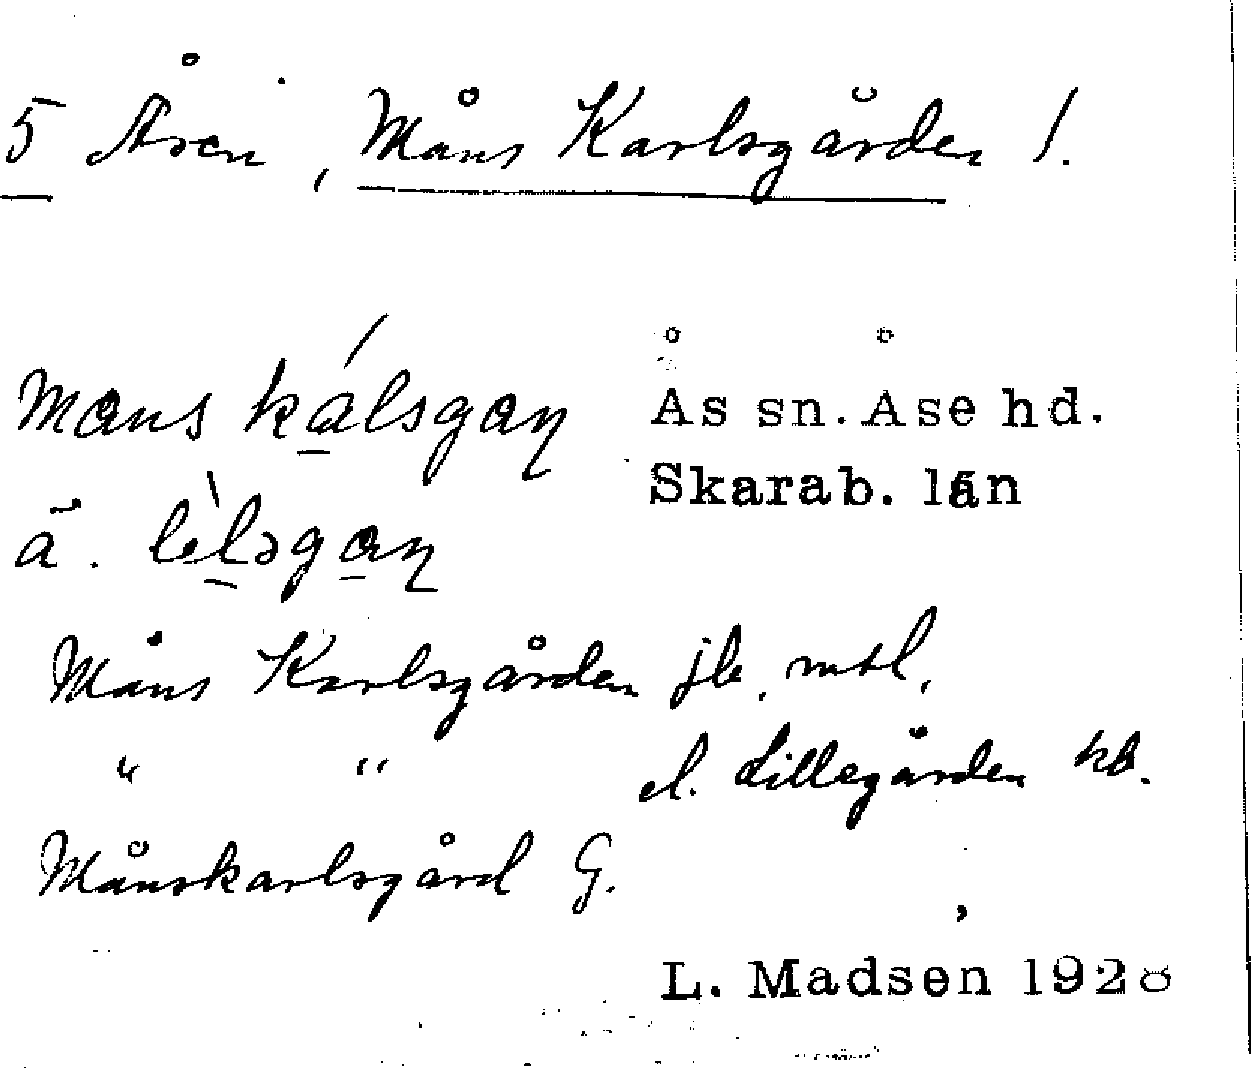 5 Åsen, Måns Karlsgården /.
Mans kálsgaɳ
Ås sn. Åse hd.
Skarab. län
ä. lèlsgaɳ
Måns Karlsgården jb. mtl,
" " el. Lillegården kb.
Månskarlsgård G.
L. Madsen 1928